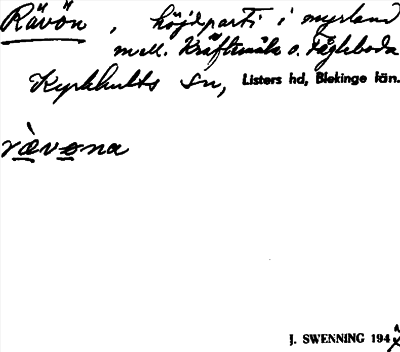 Rävön, höjdparti i myrland
mell. Kräftemåla o. Fågleboda
Kyrkhults Sn, Listers hd, Blekinge län.
rævona
J. SWENNING 194